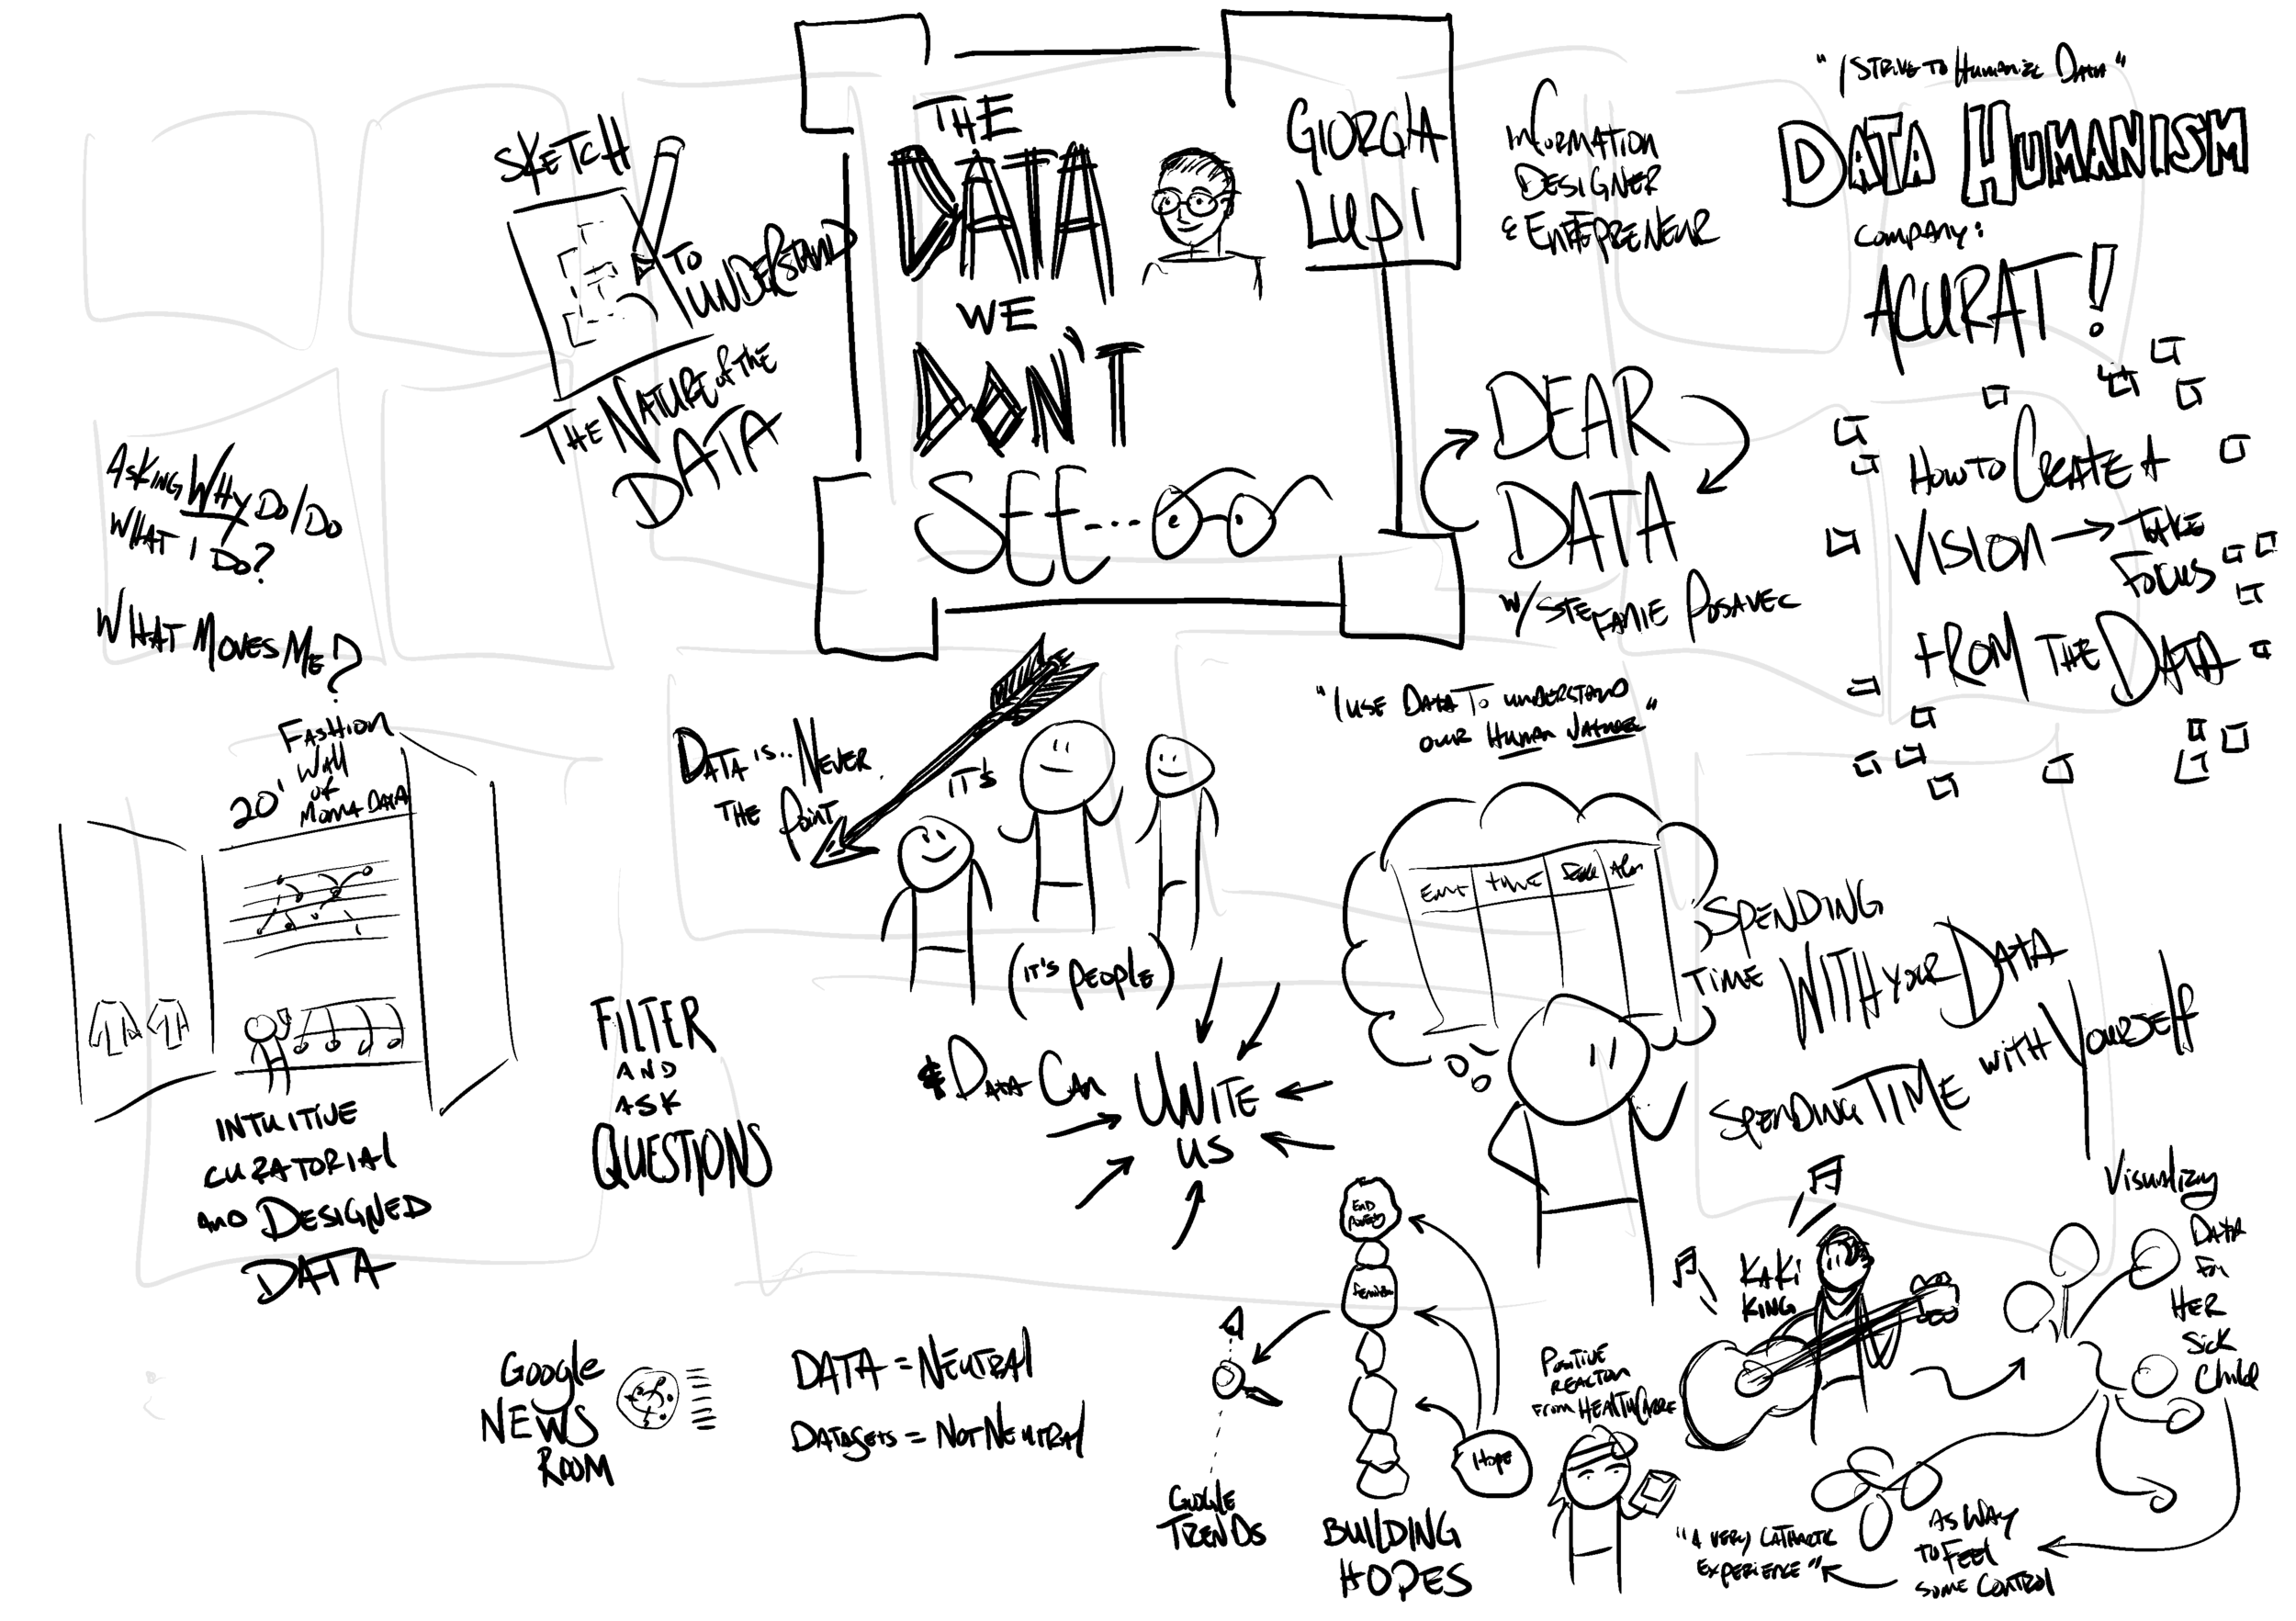 THE
DATA
WE
DON'T
SEE...
GIORGIA
LUPI
INFORMATION
DESIGNER
& ENTREPRENEUR
"I STRIVE TO HUMANIZE DATA"
DATA HUMANISM
COMPANY:
ACURAT!
SKETCH
TO
UNDERSTAND
THE NATURE of THE
DATA
DEAR
DATA
W/ STEFANIE POSAVEC
HOW TO CREATE A
VISION → TAKE
FOCUS
FROM THE DATA
ASKING WHY DO I DO
WHAT I DO?
WHAT MOVES ME?
"I USE DATA TO UNDERSTAND
OUR HUMAN NATURE"
FASHION
WALL
OF
20' MOMA DATA
INTUITIVE
CURATORIAL
AND DESIGNED
DATA
DATA IS.. NEVER
THE POINT
IT'S
(IT'S PEOPLE)
& DATA CAN UNITE
US
FILTER
AND
ASK
QUESTIONS
TIME
SPENDING
TIME WITH YOUR DATA
SPENDING TIME WITH YOURSELF
GOOGLE
NEWS
ROOM
DATA = NEUTRAL
DATASETS = NOT NEUTRAL
END
POVERTY
HOPE
GOOGLE
TRENDS
BUILDING
HOPES
POSITIVE
REACTON
FROM HEALTHCARE
KAKI
KING
VISUALIZING
DATA
HER
SICK
CHILD
AS WAY
TO FEEL
SOME CONTROL
"A VERY CATHARTIC
EXPERIENCE"